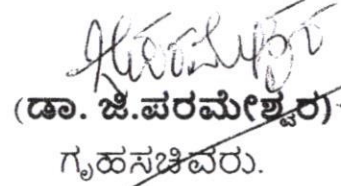 (ಡಾ. ಜಿ.ಪರಮೇಶ್ವರ)
ಗೃಹಸಚಿವರು.